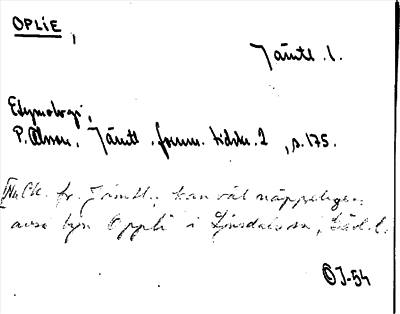 OPLIE,
Jämtl. l.
Etymologi,
P. Olsson, Jämtl. fornm. tidskr. 2, s. 175.
fr. Jämtl., kan väl näppeligen
avse byn Oppli i
OJ-54